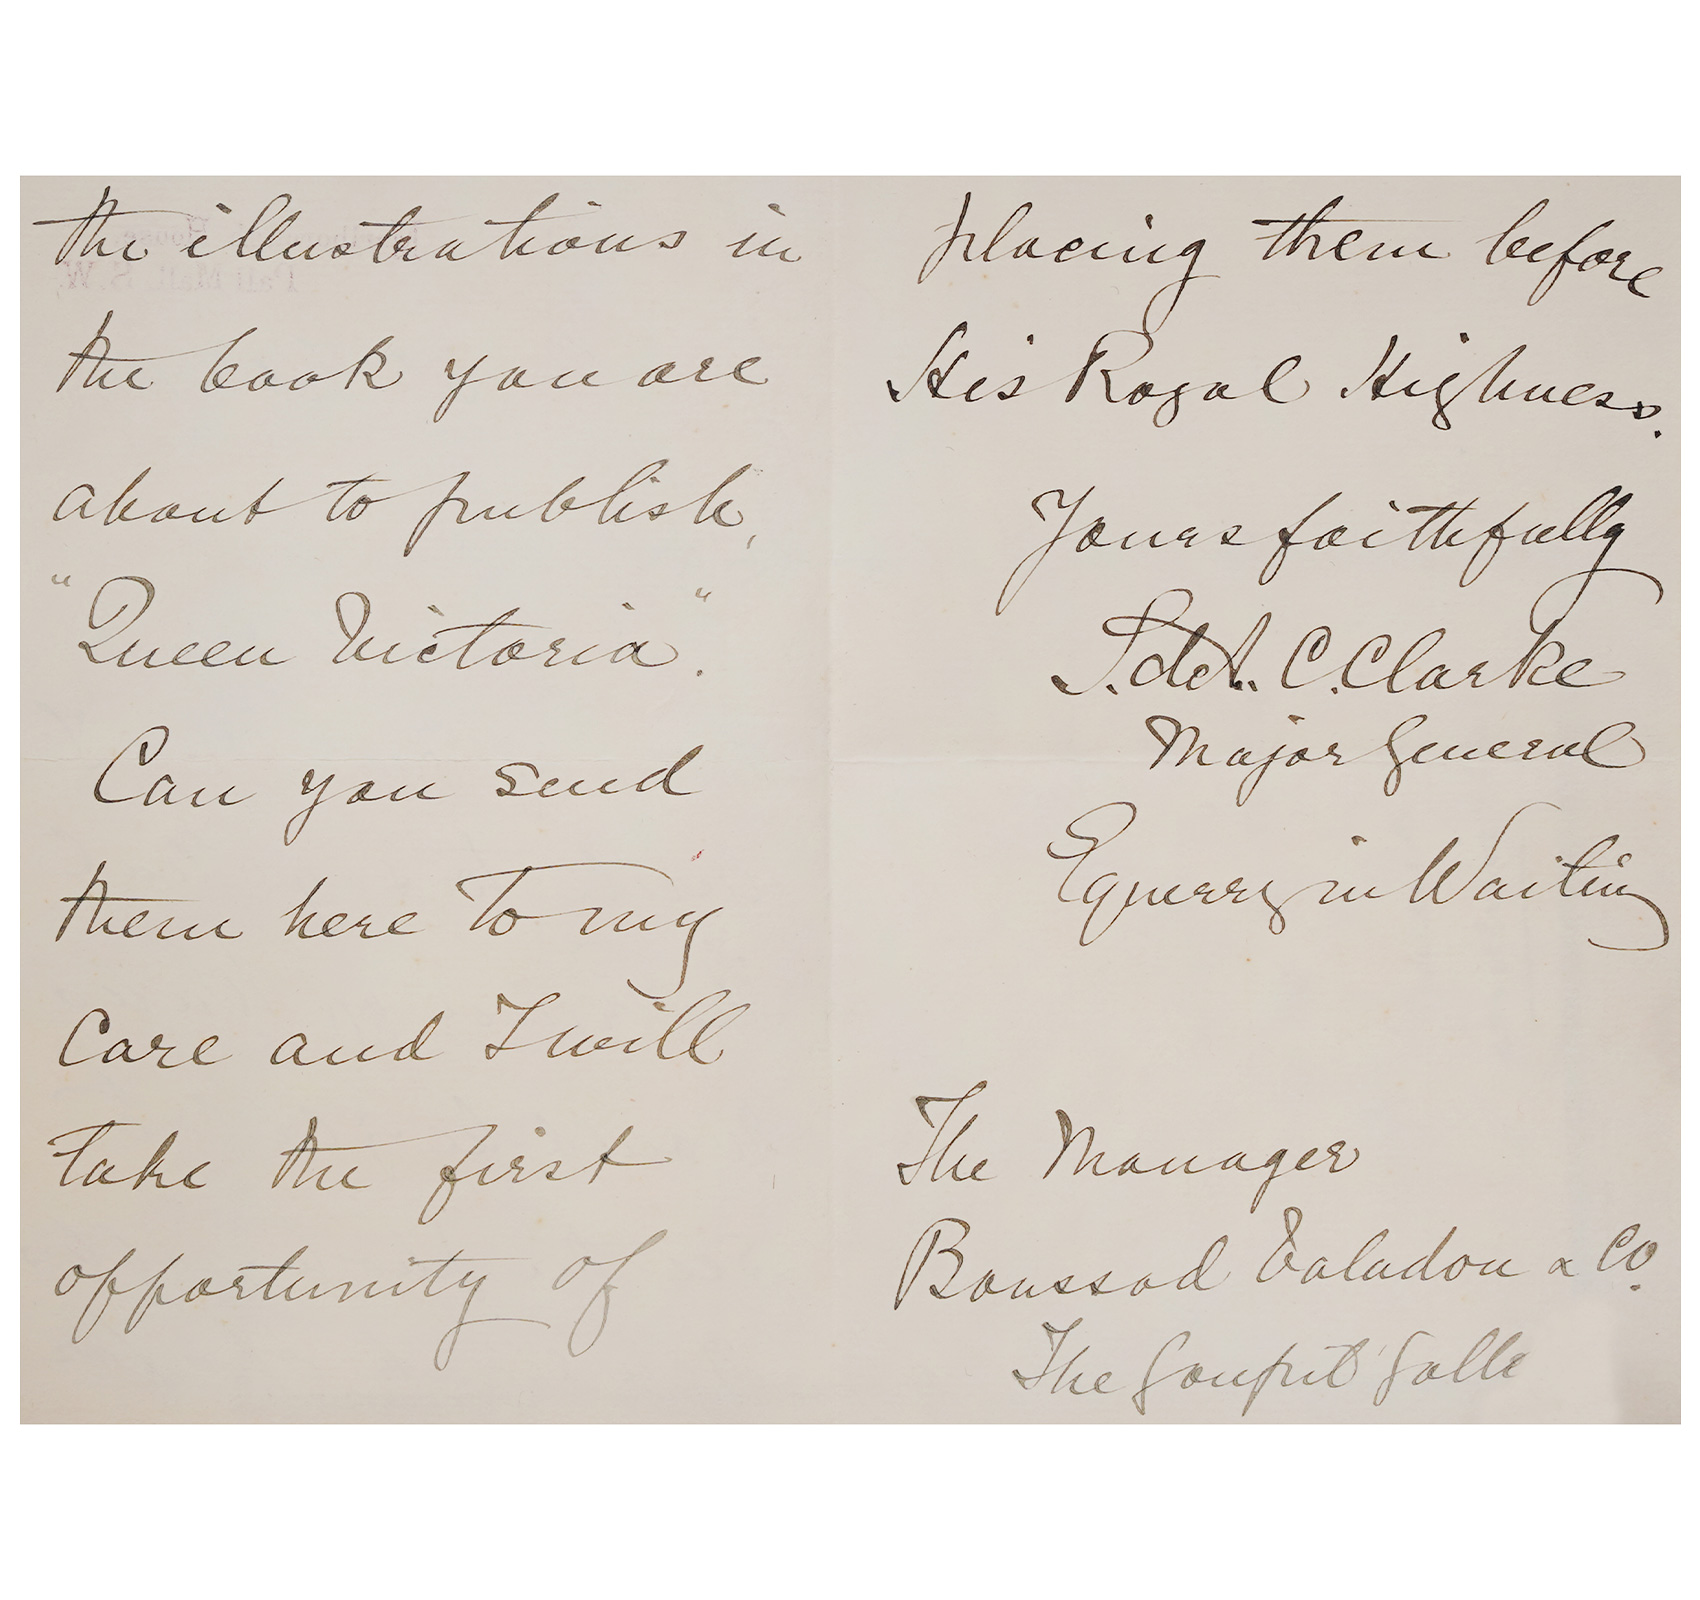 the illustrations in
the book you are
about to publish,
"Queen Victoria".
Can you send
them here to my
care and I will
take the first
opportunity of
placing them before
His Royal Highness.
Yours faithfully
S. de A. C. Clarke
Major General
Equerry in Waiting
The Manager
Boussod Valadon & Co.
The Goupil Galle
House,
Pall Mall. S.W.